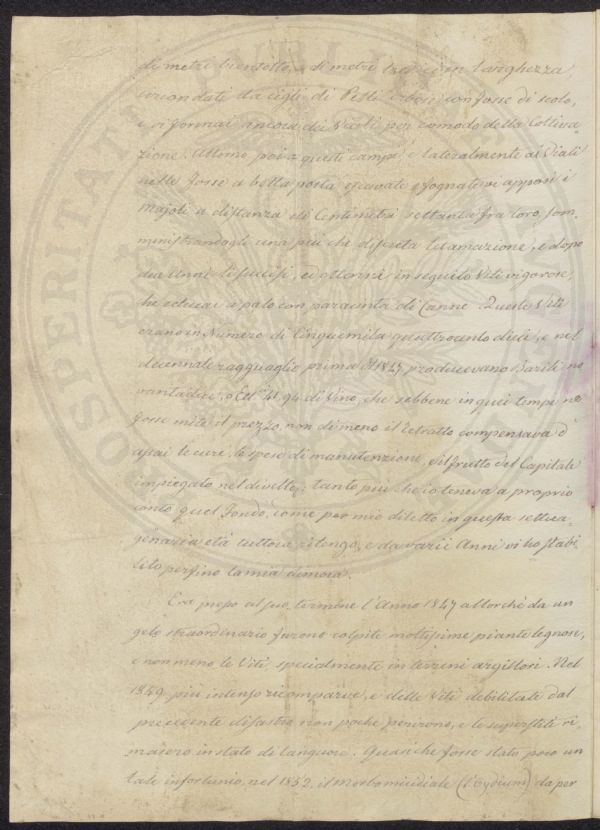 di metri trentotto, e di metri tredici in larghezza,
circondati da cigli di Piste erbose con fosse di scolo,
e vi formai ancora dei Viali per comodo della Coltiva-
zione. Attorno poi a questi campi, e lateralmente ai Viali
nelle fosse a bella posta escavate e fognate vi apposi i
majoli a distanza di Centimetri settanta fra loro, som-
ministrandogli una più che discreta letamazione, e dopo
due Anni li succisi, ed ottenni in seguito Viti vigorose,
che educai a palo con paracinta di Canne. Queste Viti
erano in Numero di Cinquemila quattrocento dieci, e nel
decennale ragguaglio prima del 1847 producevano Barili no-
vantadue, o Ett. 41. 94 di Vino, che sebbene in quei tempi ne
fosse mite il prezzo, non di meno il retratto compensava d'
assai le cure, le spese di manutenzione, ed il frutto del Capitale
impiegato nel divelto; tanto più che io teneva a proprio
conto quel Fondo, come per mio diletto in questa settua-
genaria età tuttora ritengo, e da varii Anni vi ho stabi-
lito perfino la mia dimora.
Era presso al suo termine l'Anno 1847 allorchè da un
gelo straordinario furono colpite moltissime piante legnose,
e non meno le Viti, specialmente in terreni argillosi. Nel
1849 più intenso ricomparve, e delle Viti debilitate dal
precedente disastro non poche perirono, e le superstiti ri-
masero in stato di languore. Quasi che fosse stato poco un
tale infortunio, nel 1852, il Morbo micidiale (l'Oydium) da per